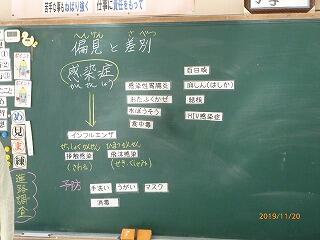 苦手な事もねばり強く
仕事に責任をもって
へんけん
さべつ
偏見と差別
感染症
かんせんしょう
感染性胃腸炎
おたふくかぜ
水ぼうそう
食中毒
百日咳
麻しん(はしか)
結核
HIV感染症
インフルエンザ
せっしょくかんせん
接触感染
(さわる)
ひまつかんせん
飛沫感染
(せき、くしゃみ)
予防
手洗い
うがい
マスク
消毒
め
見
ま
練
進路調査
2019/11/20